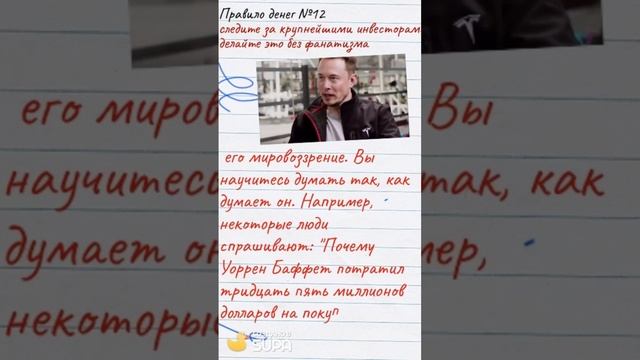 Правило денег №12
следите за крупнейшими инвесторам
делайте это без фанатизма
его мировоззрение. Вы
научитесь думать так, как
думает он. Например,
некоторые люди
спрашивают: "Почему
Уоррен Баффет потратил
тридцать пять миллионов
долларов на покуп
SUPA